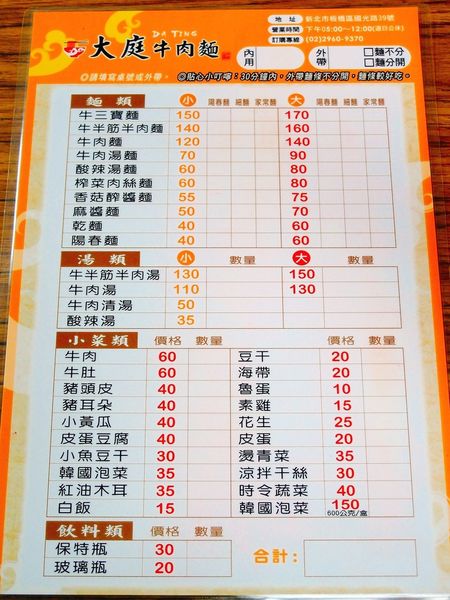 DA TING
大庭牛肉麵
地址 新北市板橋區國光路39號
營業時間 下午05:00~12:00(週日公休)
訂購專線 (02)2960-9370
內用 外帶 □麵不分 □麵分開
◎請填寫桌號或外帶。 ◎貼心小叮嚀:30分鐘內,外帶麵條不分開,麵條較好吃。
麵類 小 陽春麵 細麵 家常麵 大 陽春麵 細麵 家常麵
牛三寶麵 150 170
牛半筋半肉麵 140 160
牛肉麵 120 140
牛肉湯麵 70 90
酸辣湯麵 60 80
榨菜肉絲麵 60 80
香菇醡醬麵 55 75
麻醬麵 50 70
乾麵 40 60
陽春麵 40 60
湯類 小 數量 大 數量
牛半筋半肉湯 130 150
牛肉湯 110 130
牛肉清湯 50
酸辣湯 35
小菜類 價格 數量 價格 數量
牛肉 60 豆干 20
牛肚 60 海帶 20
豬頭皮 40 魯蛋 10
豬耳朵 40 素雞 15
小黃瓜 40 花生 25
皮蛋豆腐 40 皮蛋 20
小魚豆干 30 燙青菜 35
韓國泡菜 35 涼拌干絲 30
紅油木耳 35 時令蔬菜 40
白飯 15 韓國泡菜 150
600公克/盒
飲料類 價格 數量
保特瓶 30
玻璃瓶 20
合計: